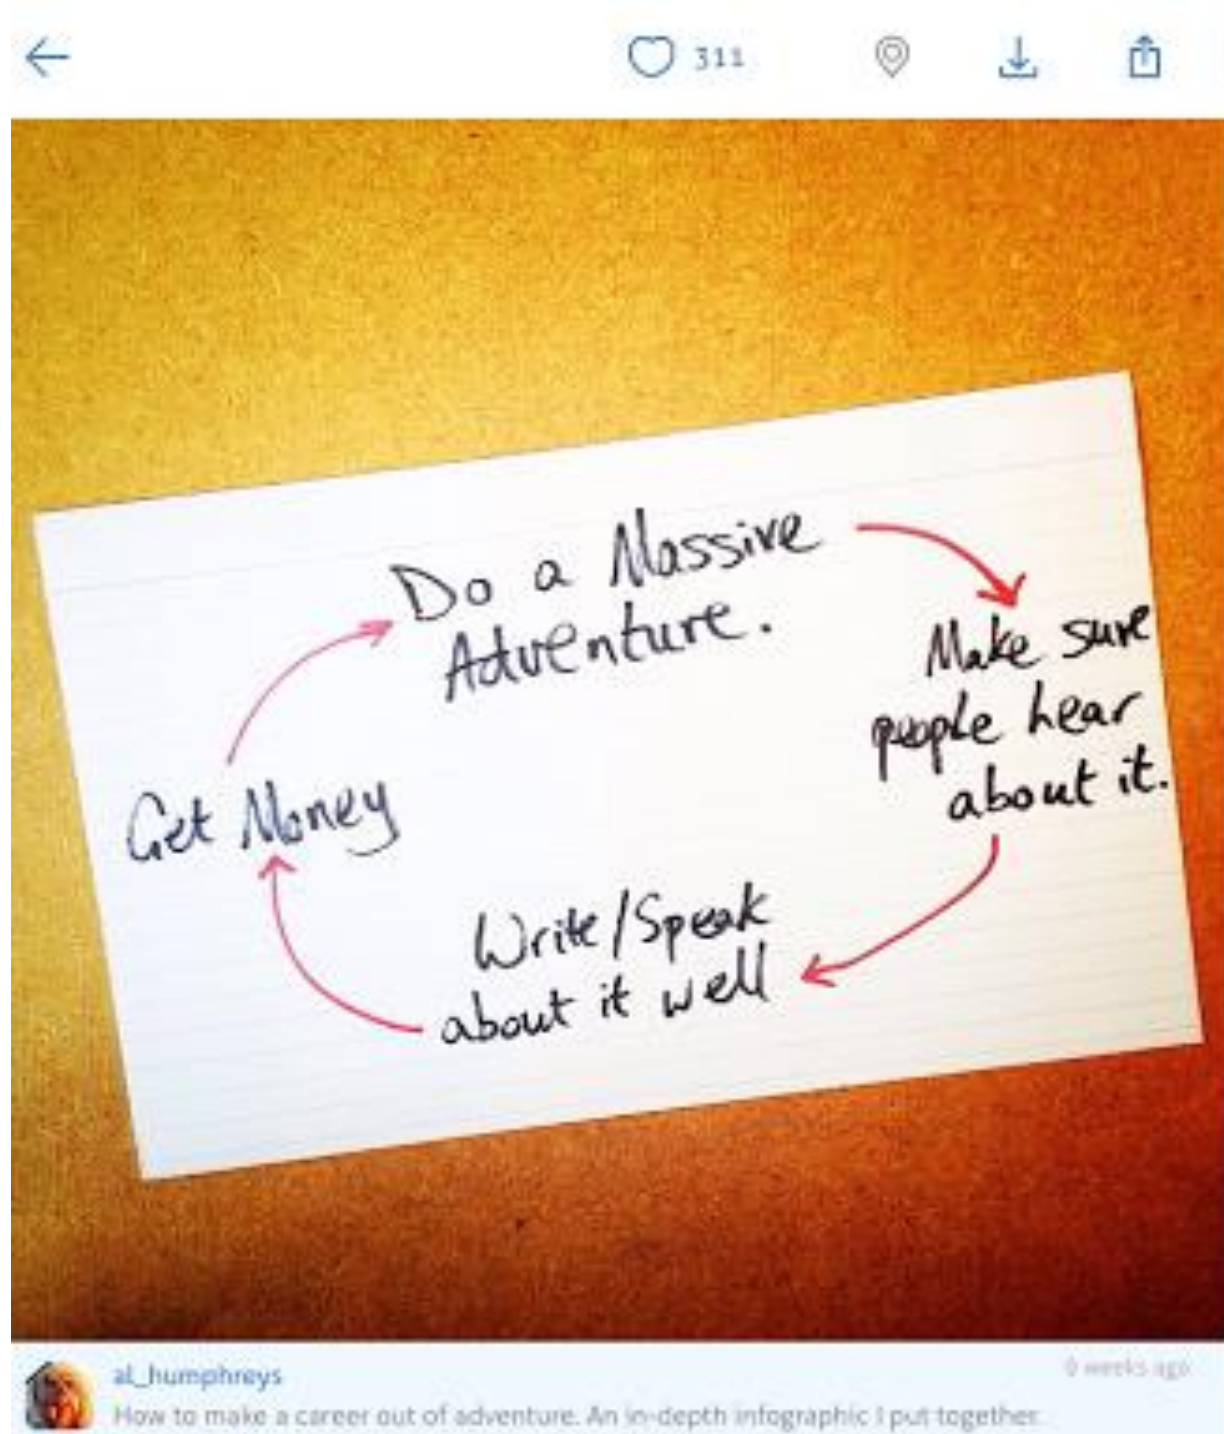 311
Do a Massive
Adventure.
Make sure
people hear
about it.
Write/Speak
about it well
Get Money
al_humphreys
weeks ago
How to make a career out of adventure. An in-depth infographic I put together.